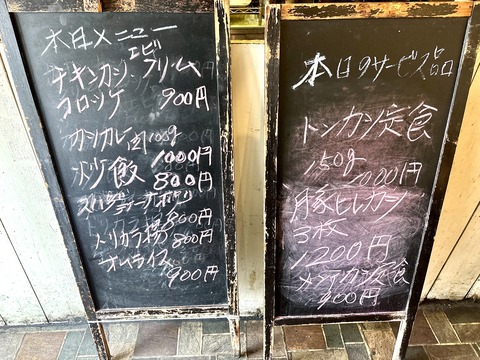 本日メニュー
エビ
チキンカツ、フリ・ム
コロッケ 900円
カツカレー肉100g
1000円
炒飯 800円
スパゲティーナポリタン
800円
トリカラ揚 800円
オムライス
900円
本日のサービス品
トンカツ定食
150g
1000円
豚ヒレカツ
3枚
1200円
メンチカツ定食
900円